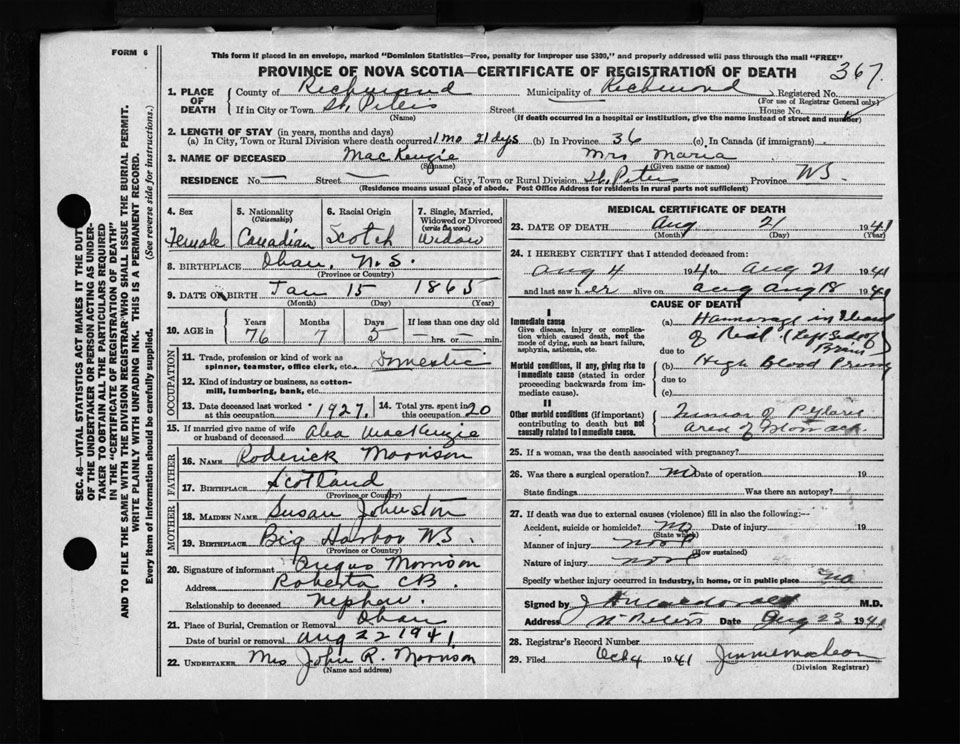 FORM 6
This form if placed in an envelope, marked "Dominion Statistics—Free, penalty for improper use $300," and properly addressed will pass through the mail "FREE"
PROVINCE OF NOVA SCOTIA—CERTIFICATE OF REGISTRATION OF DEATH
367.
1. PLACE OF DEATH
County of Richmond Municipality of Richmond Registered No.
(For use of Registrar General only)
If in City or Town St. Peters Street House No.
(Name) (If death occurred in a hospital or institution, give the name instead of street and number)
2. LENGTH OF STAY (in years, months and days)
(a) In City, Town or Rural Division where death occurred 1 mo 21 dys (b) In Province 36 (c) In Canada (if immigrant)
3. NAME OF DECEASED MacKenzie Mrs Maria
(Surname) (Given name or names)
RESIDENCE No. — Street — City, Town or Rural Division St. Peters Province N.S.
(Residence means usual place of abode. Post Office Address for residents in rural parts not sufficient)
4. Sex
Female
5. Nationality
(Citizenship)
Canadian
6. Racial Origin
Scotch
7. Single, Married, Widowed or Divorced
(write the word)
Widow
8. BIRTHPLACE Oban, N.S.
(Province or Country)
9. DATE OF BIRTH Jan 15 1865
(Month) (Day) (Year)
10. AGE in
Years Months Days If less than one day
76 7 5 hrs. or min.
OCCUPATION
11. Trade, profession or kind of work as spinner, teamster, office clerk, etc. Domestic
12. Kind of industry or business, as cotton-mill, lumbering, bank, etc.
13. Date deceased last worked at this occupation 1927
14. Total yrs. spent in this occupation 20
15. If married give name of wife or husband of deceased MacKenzie
FATHER
16. NAME Roderick Morrison
17. BIRTHPLACE Scotland
(Province or Country)
MOTHER
18. MAIDEN NAME Susan Johnston
19. BIRTHPLACE Big Harbor N.S.
(Province or Country)
20. Signature of informant Angus Morrison
Address Roberta CB
Relationship to deceased Nephew.
21. Place of Burial, Cremation or Removal Oban
Date of burial or removal Aug 22 1941
22. UNDERTAKER Mrs John R. Morrison
(Name and address)
MEDICAL CERTIFICATE OF DEATH
23. DATE OF DEATH Aug 21 1941
(Month) (Day) (Year)
24. I HEREBY CERTIFY that I attended deceased from:
Aug 4 1941 to Aug 21 1941
and last saw her alive on Aug 18 1941
CAUSE OF DEATH
I
Immediate cause
Give disease, injury or complication which caused death, not the mode of dying, such as heart failure, asphyxia, asthenia, etc.
(a) Hemorage in
(Left Side of Brain)
due to
Morbid conditions, if any, giving rise to immediate cause (stated in order proceeding backwards from immediate cause).
(b) High Blood Pressure
due to
(c)
II
Other morbid conditions (if important) contributing to death but not causally related to immediate cause.
Tumor of Pyloric
area of Stomach.
25. If a woman, was the death associated with pregnancy?
26. Was there a surgical operation? No Date of operation 19
State findings Was there an autopsy?
27. If death was due to external causes (violence) fill in also the following:—
Accident, suicide or homicide? No Date of injury 19
(State which)
Manner of injury
(How sustained)
Nature of injury
Specify whether injury occurred in industry, in home, or in public place no
Signed by J. A. Macdonald M.D.
Address St Peters Date Aug 23 1941
28. Registrar's Record Number
29. Filed Oct 4 1941
(Division Registrar)
SEC. 46—VITAL STATISTICS ACT MAKES IT THE DUTY
OF THE UNDERTAKER OR PERSON ACTING AS UNDER-
TAKER TO OBTAIN ALL THE PARTICULARS REQUIRED
IN THE "CERTIFICATE OF REGISTRATION OF DEATH"
AND TO FILE THE SAME WITH THE DIVISION REGISTRAR WHO SHALL ISSUE THE BURIAL PERMIT.
WRITE PLAINLY WITH UNFADING INK. THIS IS A PERMANENT RECORD.
Every item of information should be carefully supplied. (See reverse side for instructions.)